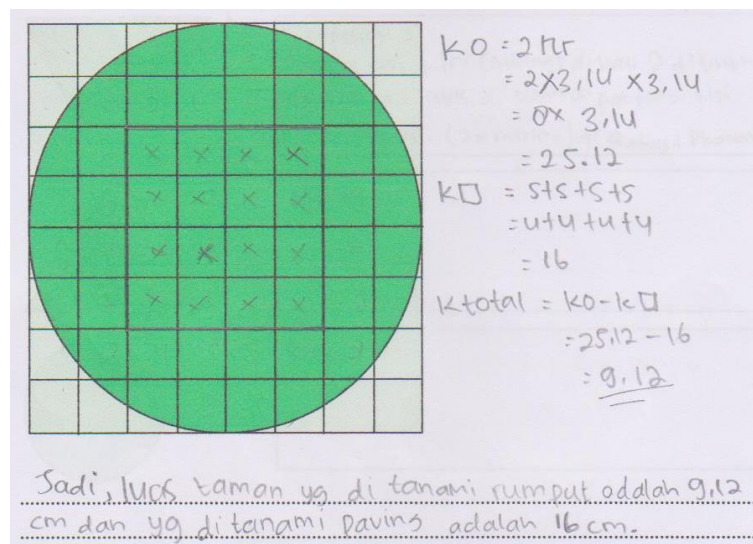 KO = 2πr
= 2x3,14 x3,14
= 8x 3,14
= 25.12
K□ = s+s+s+s
= 4+4+4+4
= 16
Ktotal = KO-K□
= 25,12 - 16
= 9,12
Jadi, luas taman yg di tanami rumput adalah 9,12
cm dan yg di tanami paving adalah 16 cm.